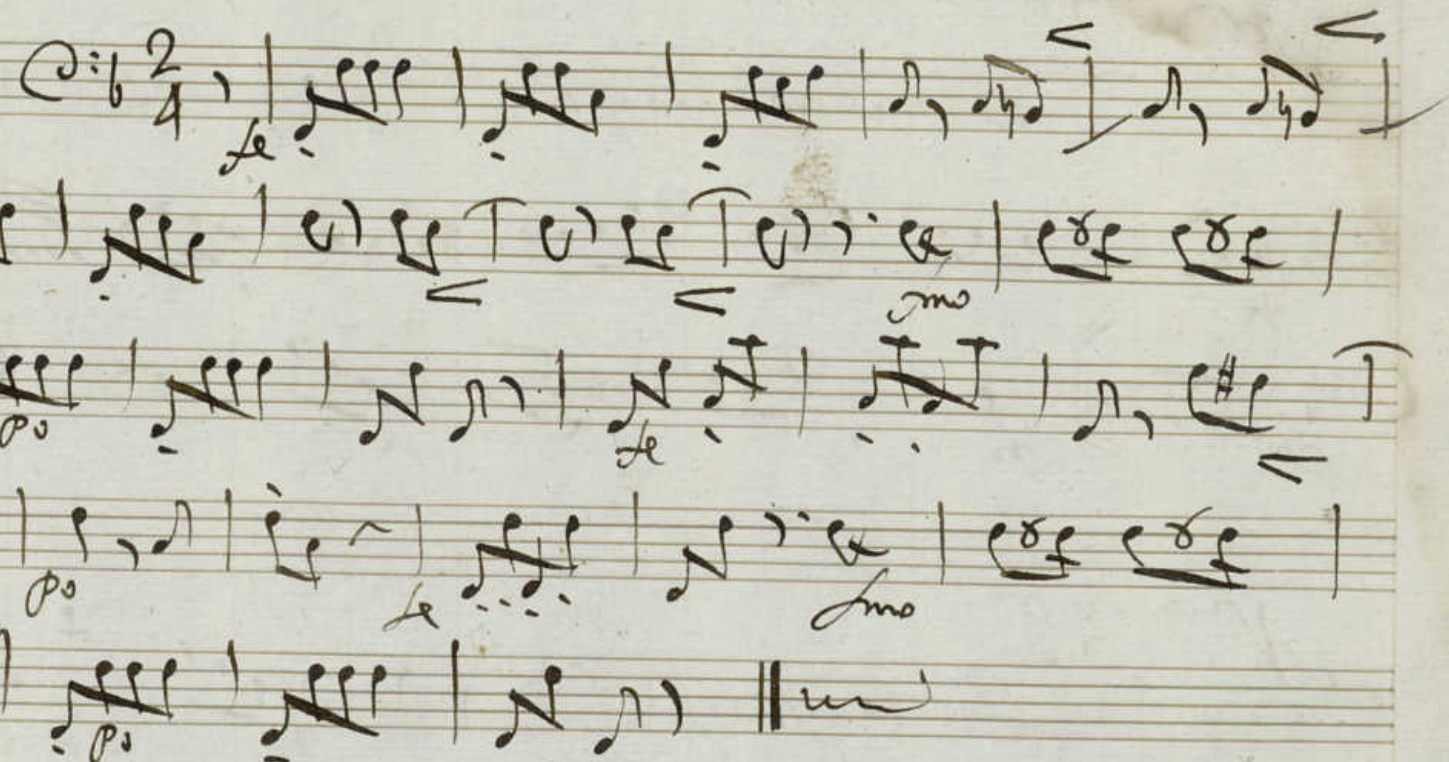 2
4
fe
smo
po
fe
po
fe
fmo
po